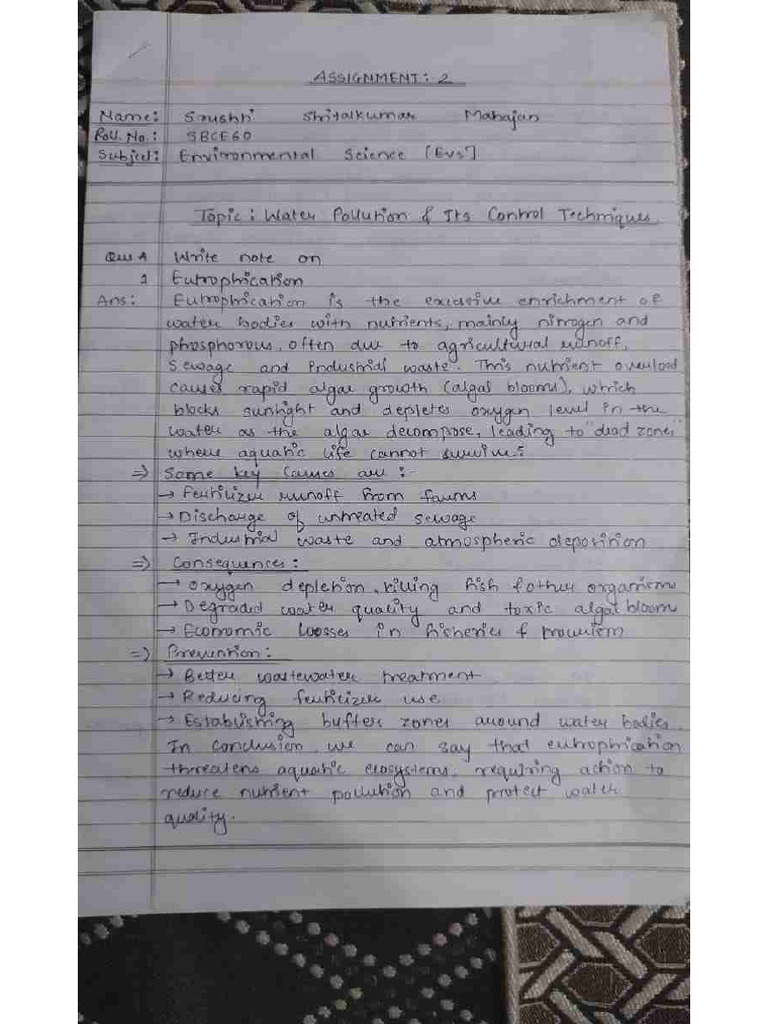 ASSIGNMENT: 2
Name: Srushti Shitalkumar Mahajan
Roll. No.: SBCE60
Subject: Environmental Science [EVS]
Topic: Water Pollution & Its Control Techniques.
Que A Write note on
1 Eutrophication
Ans: Eutrophication is the excessive enrichment of
water bodies with nutrients, mainly nitrogen and
phosphorous, often due to agricultural runoff,
Sewage and Industrial waste. This nutrient overload
causes rapid algae growth (algal blooms), which
blocks sunlight and depletes oxygen level in the
water as the algae decompose, leading to "dead zones"
where aquatic life cannot survive.
⇒ Some key Causes are :-
→ Fertilizer runoff from farms
→ Discharge of untreated sewage
→ Industrial waste and atmospheric deposition
⇒ Consequences :
→ Oxygen depletion, killing fish & other organisms
→ Degraded water quality and toxic algal bloom
→ Economic loosses in fisheries &
⇒ Prevention :
→ Better wastewater treatment
→ Reducing fertilizer use
→ Establishing buffer zones around water bodies.
In conclusion, we can say that eutrophication
threatens aquatic ecosystems, requiring action to
reduce nutrient pollution and protect water
quality.